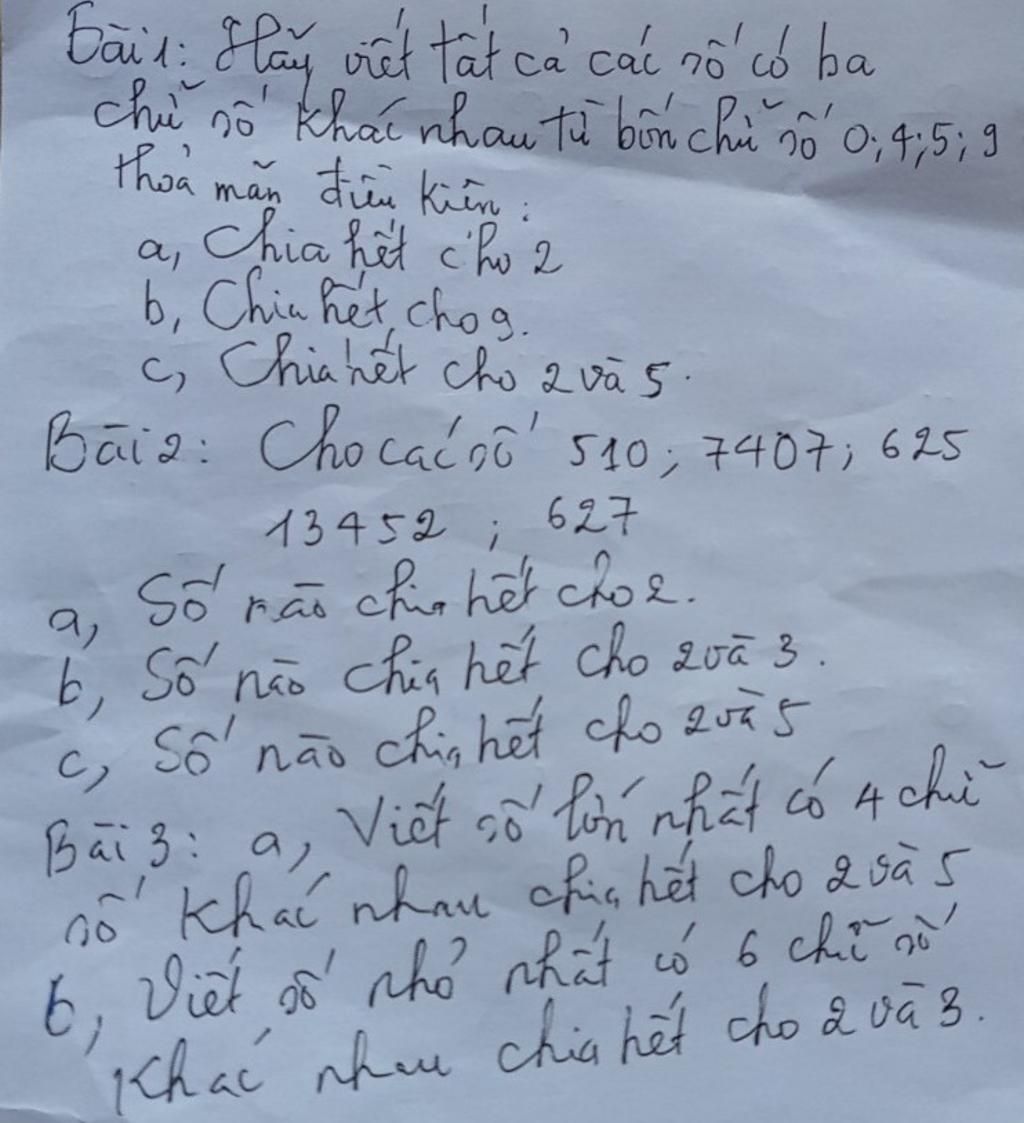 Bài 1: Hãy viết tất cả các số có ba
chữ số khác nhau từ bốn chữ số 0; 4; 5; 9
thoả mãn điều kiện:
a, Chia hết cho 2
b, Chia hết cho 9.
c, Chia hết cho 2 và 5.
Bài 2: Cho các số 510; 7407; 625
13452; 627
a, Số nào chia hết cho 2.
b, Số nào chia hết cho 2 và 3.
c, Số nào chia hết cho 2 và 5
Bài 3: a, Viết số lớn nhất có 4 chữ
số khác nhau chia hết cho 2 và 5
b, Viết số nhỏ nhất có 6 chữ số
Khác nhau chia hết cho 2 và 3.